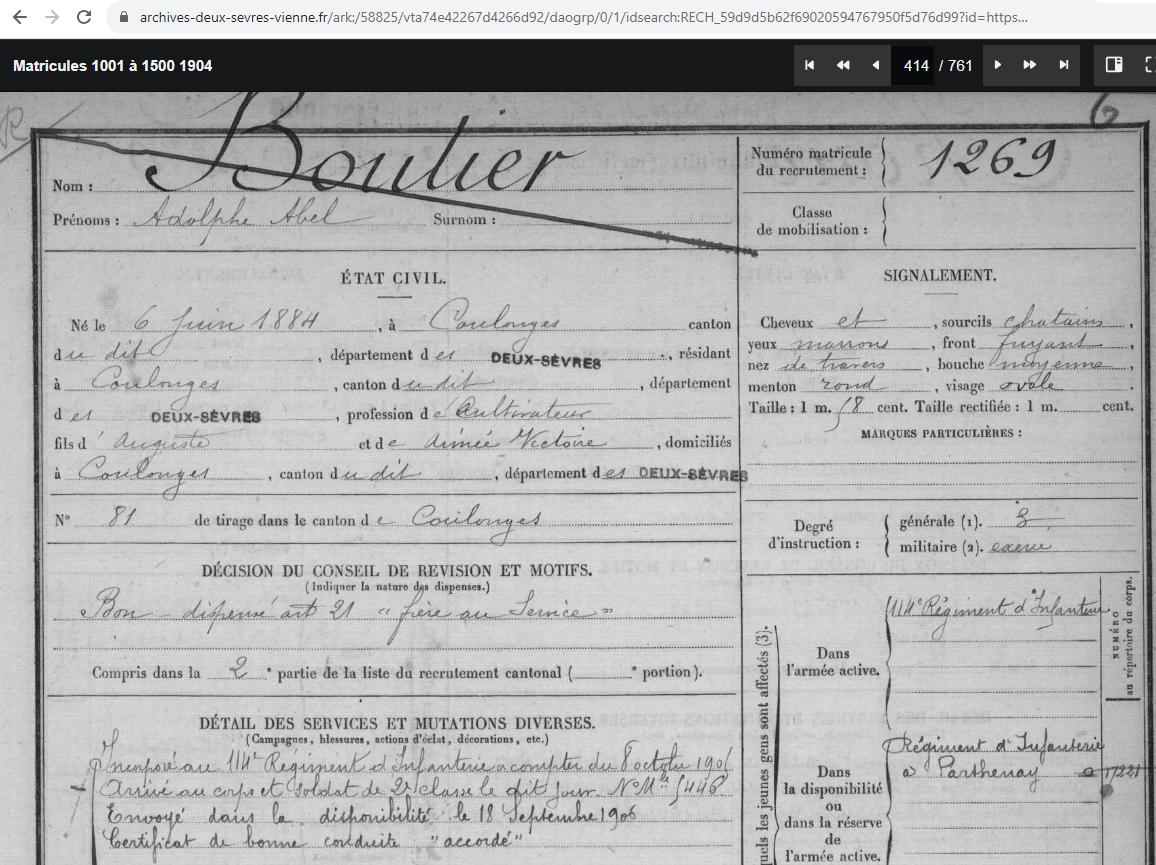 archives-deux-sevres-vienne.fr/ark:/58825/vta74e42267d4266d92/daogrp/0/1/idsearch:RECH_59d9d5b62f69020594767950f5d76d99?id=https...
Matricules 1001 à 1500 1904
414 / 761
6
Nom : Boulier
Prénoms : Adolphe Abel Surnom :
Numéro matricule du recrutement : 1269
Classe de mobilisation :
ÉTAT CIVIL.
Né le 6 Juin 1884, à Coulonges canton
du dit, département des DEUX-SÈVRES, résidant
à Coulonges, canton du dit, département
des DEUX-SÈVRES, profession de Cultivateur
fils d'Auguste et de Aimée Victoire, domiciliés
à Coulonges, canton du dit, département des DEUX-SÈVRES
N° 81 de tirage dans le canton de Coulonges
SIGNALEMENT.
Cheveux et, sourcils chatains,
yeux marrons, front fuyant,
nez de travers, bouche moyenne,
menton rond, visage ovale.
Taille : 1 m. 58 cent. Taille rectifiée : 1 m. cent.
MARQUES PARTICULIÈRES :
Degré d'instruction :
générale (1). 3
militaire (2). exercé
DÉCISION DU CONSEIL DE REVISION ET MOTIFS.
(Indiquer la nature des dispenses.)
Bon - dispensé art 21 "frère au Service"
Compris dans la 2e partie de la liste du recrutement cantonal ( e portion).
DÉTAIL DES SERVICES ET MUTATIONS DIVERSES.
(Campagnes, blessures, actions d'éclat, décorations, etc.)
Incorporé au 114e Régiment d'Infanterie à compter du 8 octobre
Arrivé au corps et soldat de 2e classe le dit jour. N° Mle 5448
Envoyé dans la disponibilité le 18 Septembre 1906
Certificat de bonne conduite "accordé"
quels les jeunes gens sont affectés (3).
Dans l'armée active.
114e Régiment d'Infanterie
NUMÉRO au répertoire du corps.
Dans la disponibilité ou dans la réserve de l'armée active.
Régiment d'Infanterie
à Parthenay